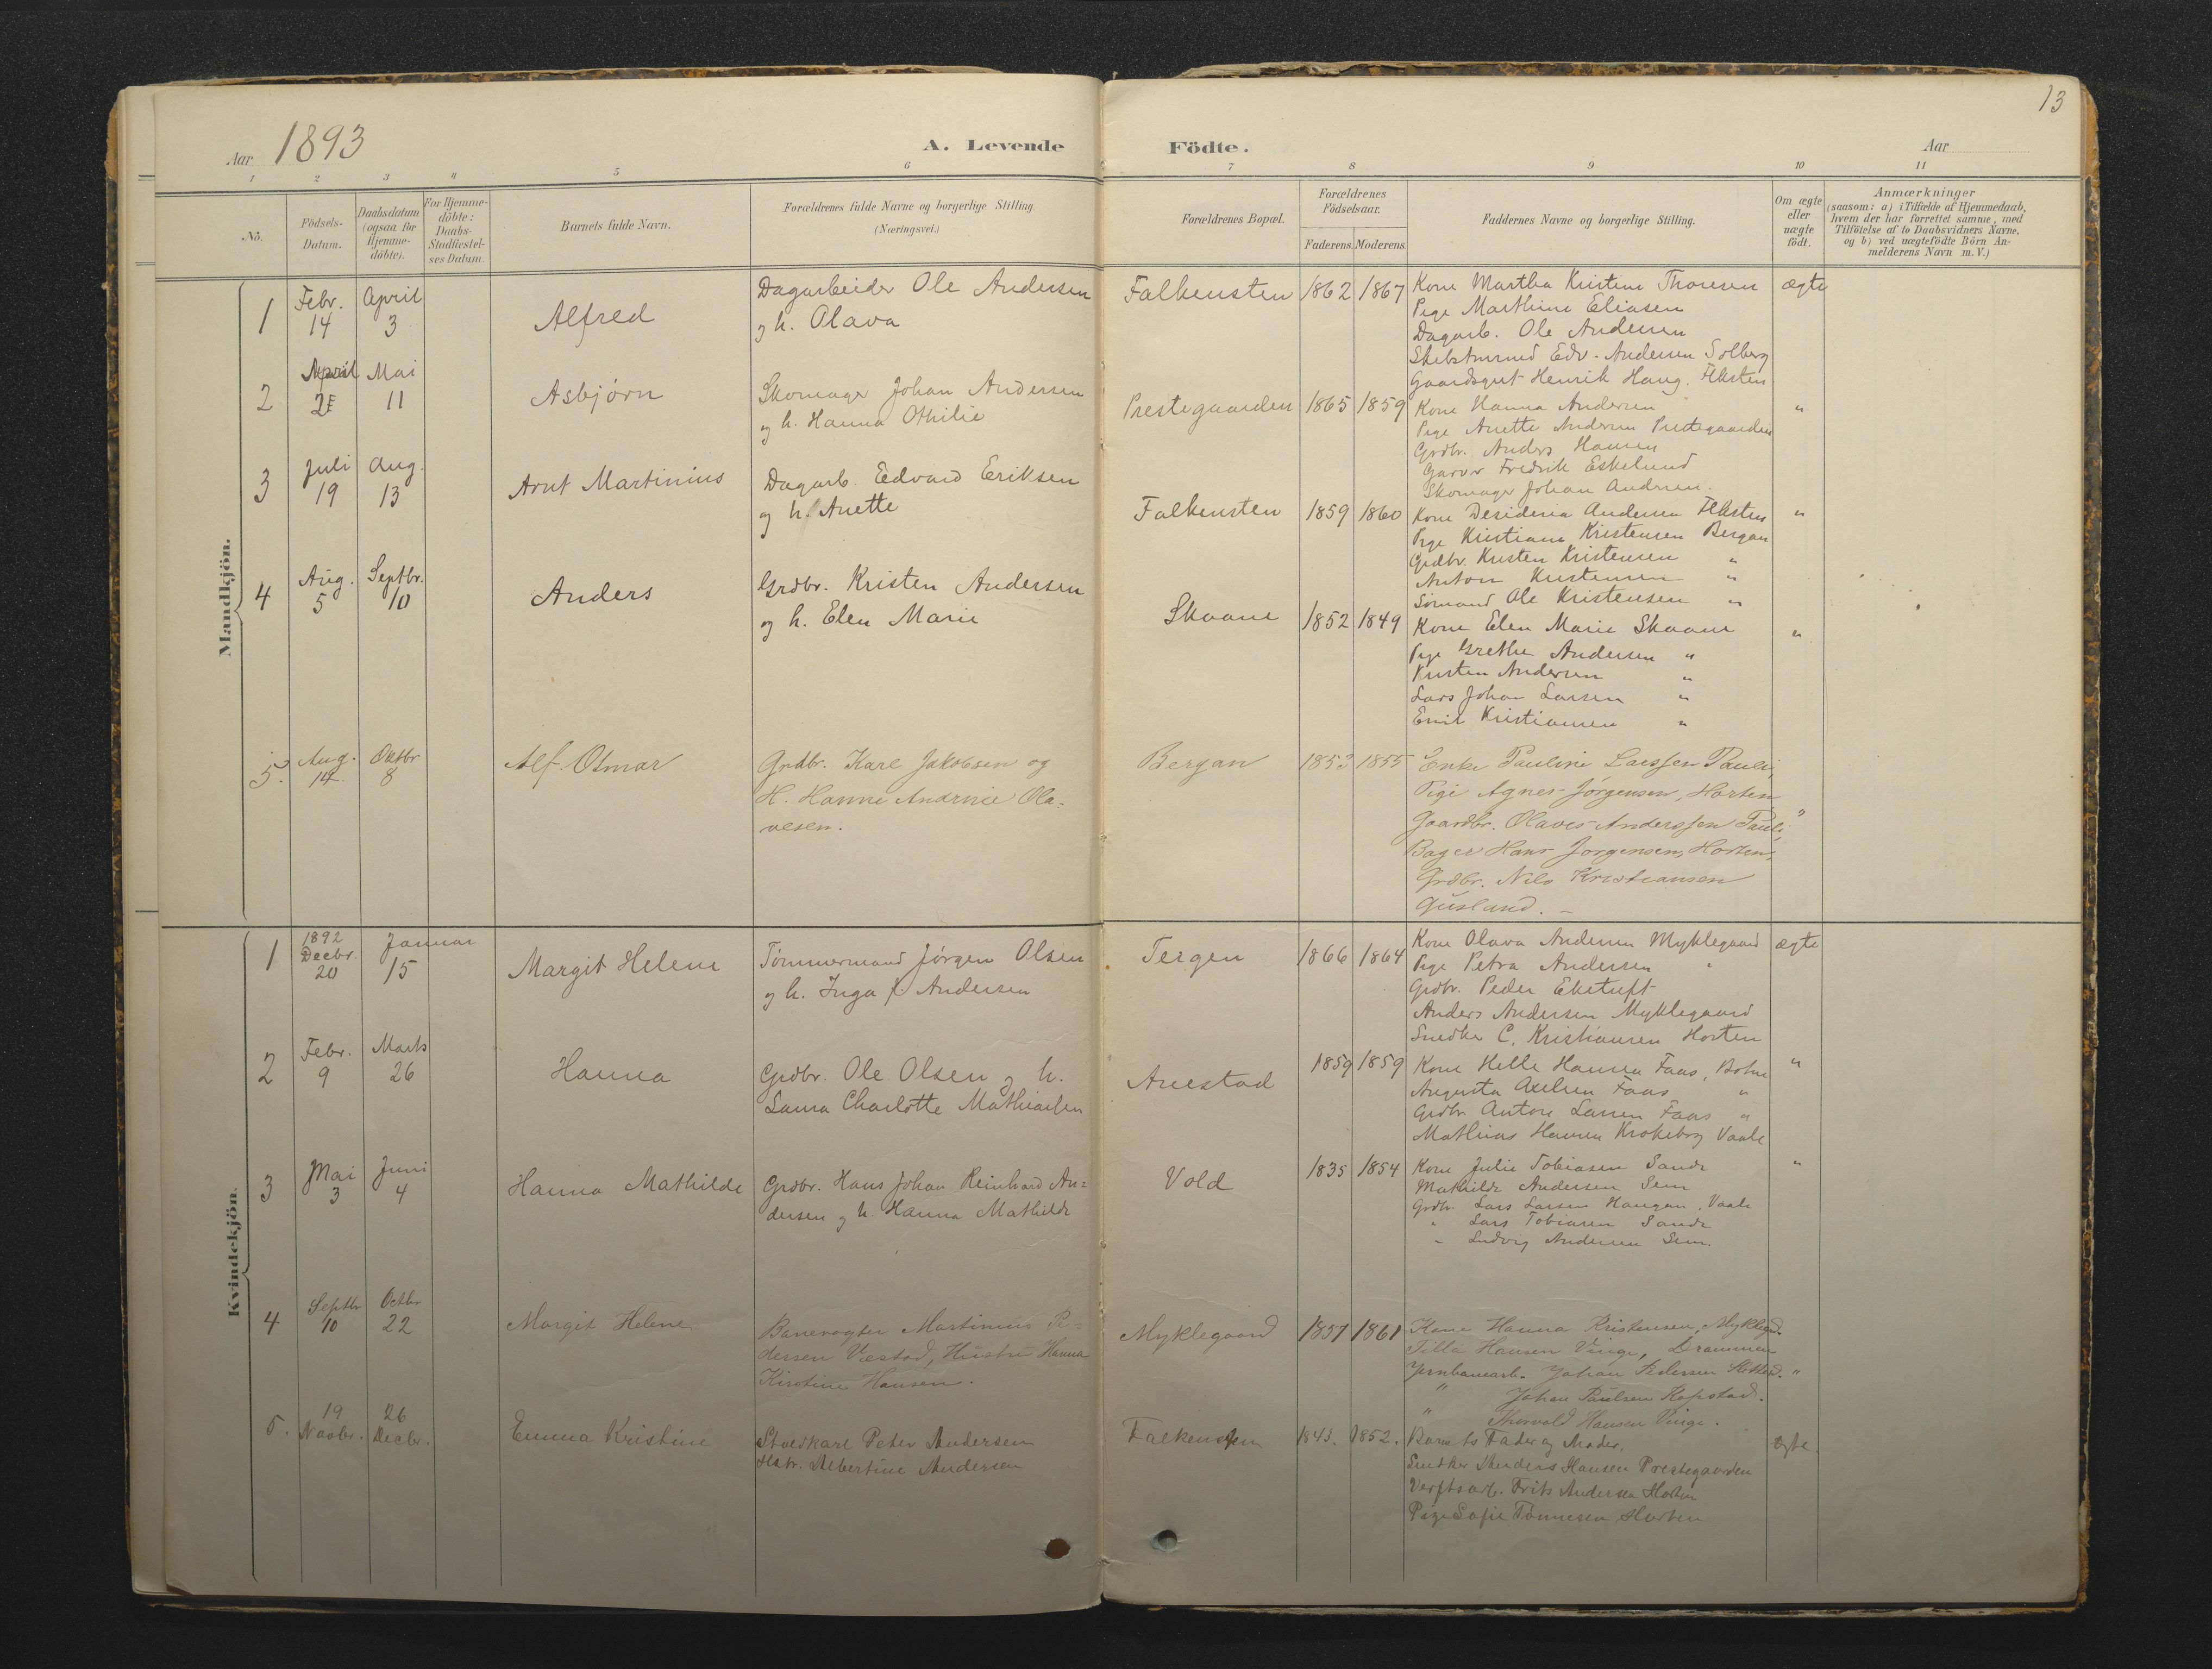 13
Aar 1893
A. Levende Födte.
Aar
1 2 3 4 5 6 7 8 9 10 11
No.
Födsels-Datum.
Daabsdatum (ogsaa for Hjemme-döbte).
For Hjemme-döbte: Daabs-Stadfæstel-ses Datum.
Barnets fulde Navn.
Forældrenes fulde Navne og borgerlige Stilling.
(Næringsvei.)
Forældrenes Bopæl.
Forældrenes Födselsaar.
Faderens. Moderens.
Faddernes Navne og borgerlige Stilling.
Om ægte eller uægte födt.
Anmærkninger
(saasom: a) i Tilfælde af Hjemmedaab,
hvem der har forrettet samme, med
Tilföielse af to Daabsvidners Navne,
og b) ved uægtefödte Börn An-
melderens Navn m. V.)
Mandkjön.
1 Febr. 14 April 3 Alfred
Dagarbeider Ole Andersen
og h. Olava
Falkensten 1862 1867
Kone Martha Kristine Thoresen ægte
Pige Marthine Eliasen
Dagarb. Ole Andersen
Edv. Andersen Solberg
Gaardsgut Henrik Haug. Flksten
2 April Mai 11 Asbjörn
Skomager Johan Andersen
og h. Hanna Othilie
Prestegaarden 1865 1859
Kone Hanna Andersen "
Pige Anette Andersen Prestegaarden
Grdbr. Anders Hansen
Garver Fredrik Eskelund
Skomager Johan Andersen.
3 Juli 19 Aug. 13 Arnt Martinius
Dagarb. Edvard Eriksen
og h. Anette
Falkensten 1859 1860
Kone Desideria Andersen Flksten "
Pige Kristiane Kristensen Bergan
Grdbr. Kristen Kristensen "
Anton Kristensen "
Sömand Ole Kristensen "
4 Aug. 5 Septbr. 10 Anders
Grdbr. Kristen Andersen
og h. Elen Marie
Skaane 1852 1849
Kone Elen Marie Skaane "
Pige Grethe Andersen "
Kristen Andersen "
Lars Johan Larsen "
Emil Kristiansen "
5. Aug. 14. Oktbr 8 Alf Otmar
Grdbr. Karl Jakobsen og
H. Hanne Andrine Ola=
vesen.
Bergan 1853 1855
Enke Pauline Larssen Pauli,
Pige Agnes Jørgensen, Horten,
Gaardbr. Olaves Anderssen Pauli, "
Bager Hans Jørgensen, Horten,
Grdbr. Nils Kristiansen
Gusland. –
Kvindekjön.
1 1892 Decbr. 20 Januar 15 Margit Helene
Tömmermand Jörgen Olsen
og h. Inga f. Andersen
Tergen 1866 1864
Kone Olava Andersen Myklegaard ægte
Pige Petra Andersen "
Grdbr. Peder Eketuft
Anders Andersen Myklegaard
Snedker C. Kristiansen Horten
2 Febr. 9 Marts 26 Hanna
Grdbr. Ole Olsen og h.
Laura Charlotte Mathiasen
Anestad 1859 1859
Kone Helle Hanna Faas, Botne "
Augusta Axelsen Faas "
Grdbr. Anton Larsen Faas "
Mathias Hansen Krokeborg Vaale
3 Mai 3 Juni 4 Hanna Mathilde
Grdbr. Hans Johan Reinhard An=
dersen og h. Hanna Mathilde
Vold 1835 1854
Kone Julie Tobiasen Sande "
Mathilde Andersen Sem
Grdbr Lars Larsen Haugan, Vaale
" Lars Tobiasen Sande
" Ludvig Andersen Sem.
4 Septbr 10 Octbr 22 Margit Helene
Banevogter Martinius Pe=
dersen Væstad, Hustru Hanna
Kirstine Hansen.
Myklegaard 1857 1861
Kone Hanna Kristensen, Myklegd.
Tilla Hansen Vinge, Drammen
Jernbanearb. Johan Pedersen "
" Johan Paulsen Kopstad.
" Thorvald Hansen Vinge.
5. 19 Novbr. 26 Decbr. Emma Kristine
Staldkarl Peter Andersen
Hstr. Albertine Andersen
Falkensten 1843. 1852.
Barnets Fader og Moder, ægte.
Snedker Anders Hansen Prestegaarden
Verftsarb. Frits Andersen Horten
Pige Sofie Tönnesen Horten